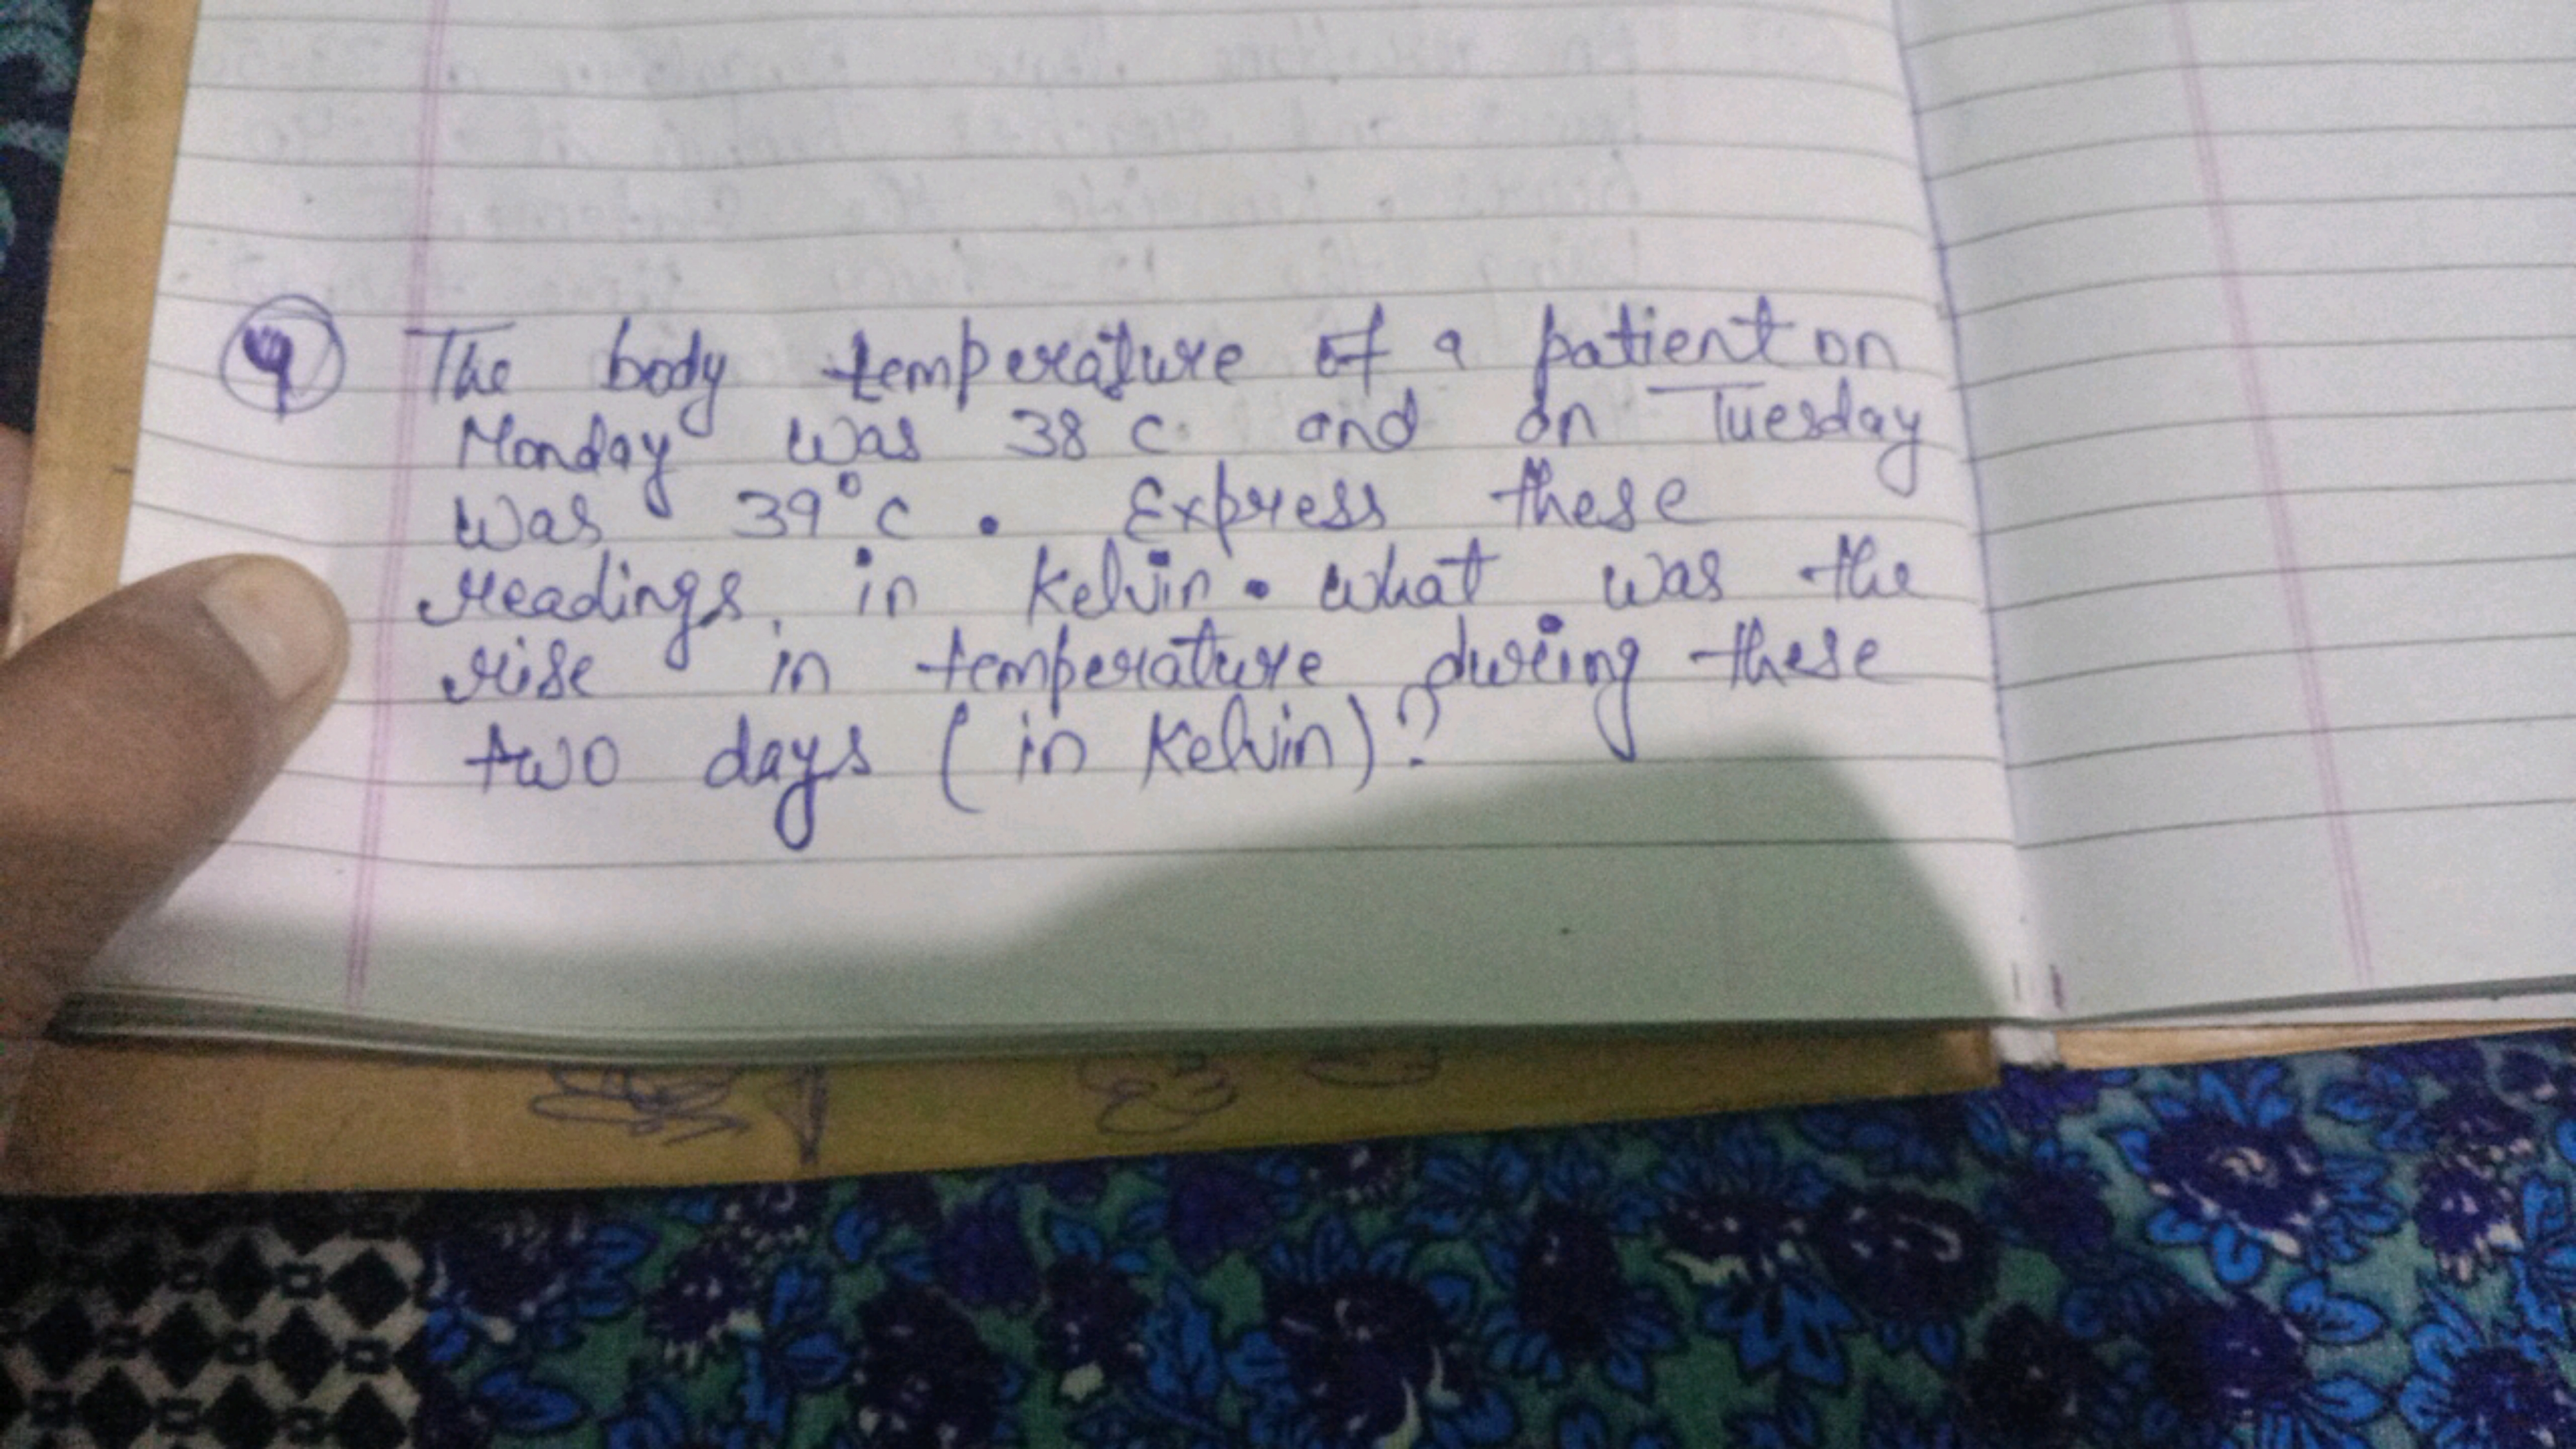 9 The body temperature of a patient on
Monday was 38 C and on Tuesday
was 39°C. Express these
readings in kelvin. what was the
rise in temperature during these
two days (in kelvin)?